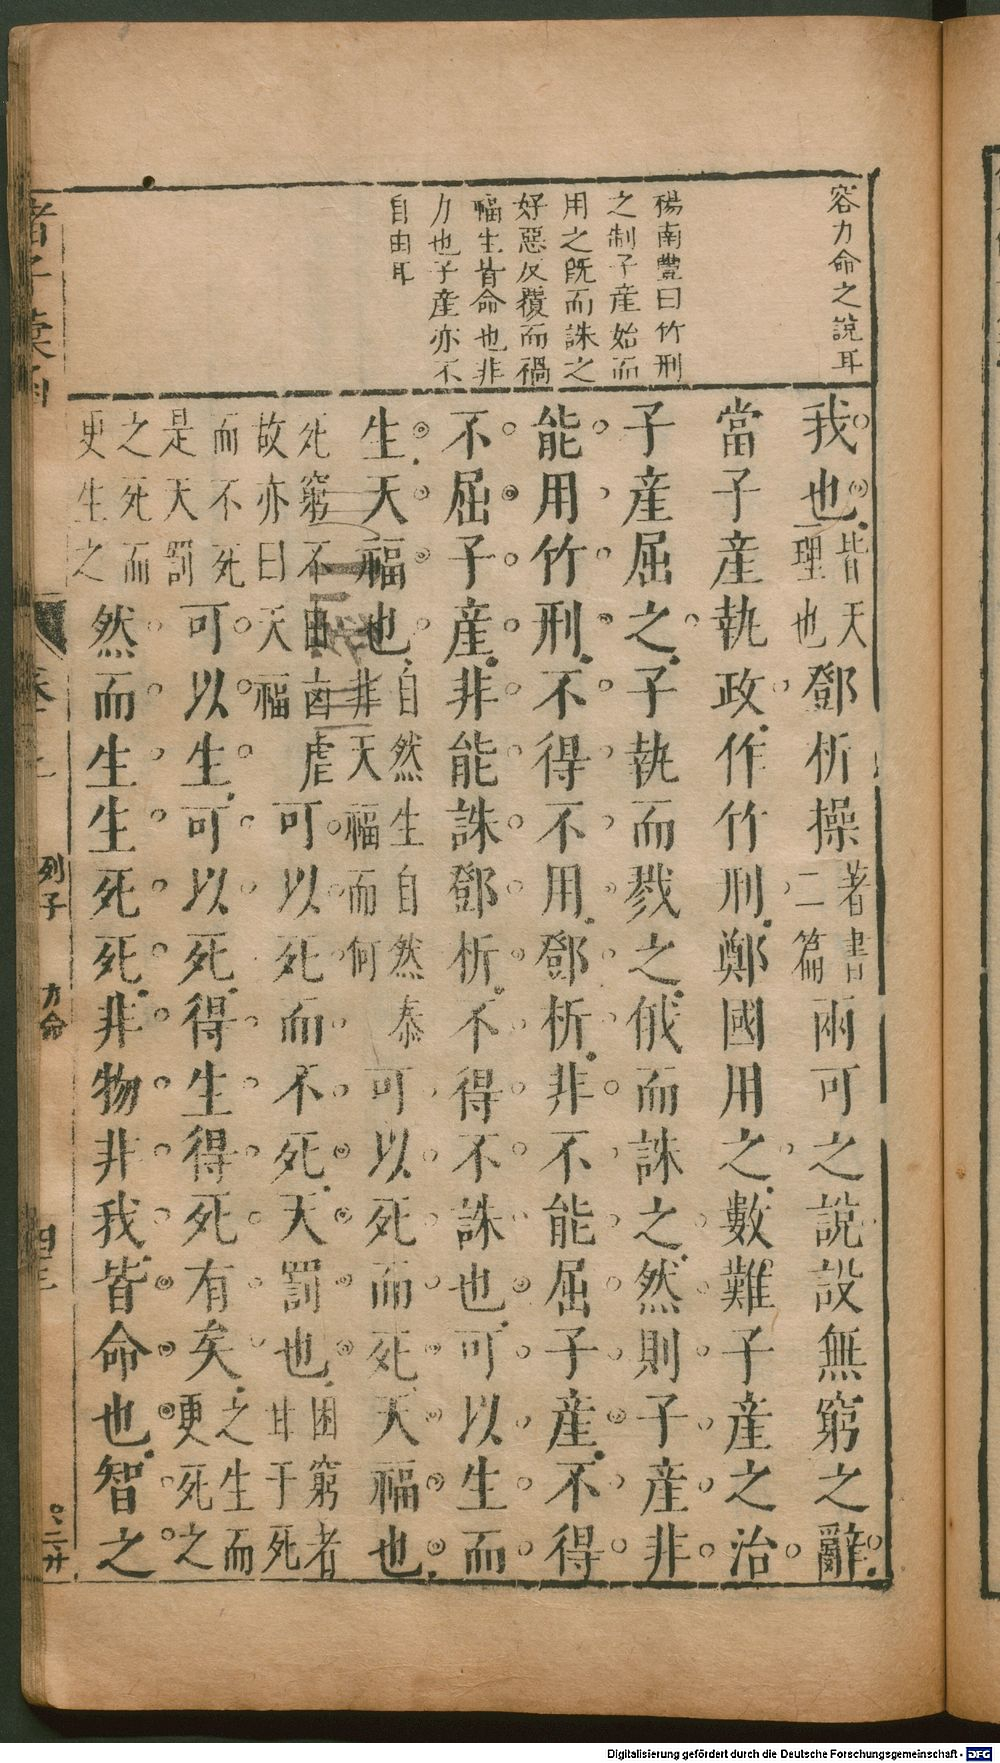 容力命之說耳
楊南豐曰竹刑
之制子產始而
用之既而誅之
好惡反覆而禍
福生皆命也非
力也子產亦不
自由耳
我也皆天理也鄧析操著書二篇兩可之說設無窮之辭
當子產執政作竹刑鄭國用之數難子產之治
子產屈之子執而戮之俄而誅之然則子產非
能用竹刑不得不用鄧析非不能屈子產不得
不屈子產非能誅鄧析不得不誅也可以生而
生天福也自然生自然泰非天福而何可以死而死天福也
死窮不由凾虐故亦曰天福可以死而不死天罰也困窮者甘于死
而不死是天罰可以生可以死得生得死有矣之生而更死之
之死而更生之然而生生死死非物非我皆命也智之
諸子彙函
列子
力命
Digitalisierung gefördert durch die Deutsche Forschungsgemeinschaft - DFG